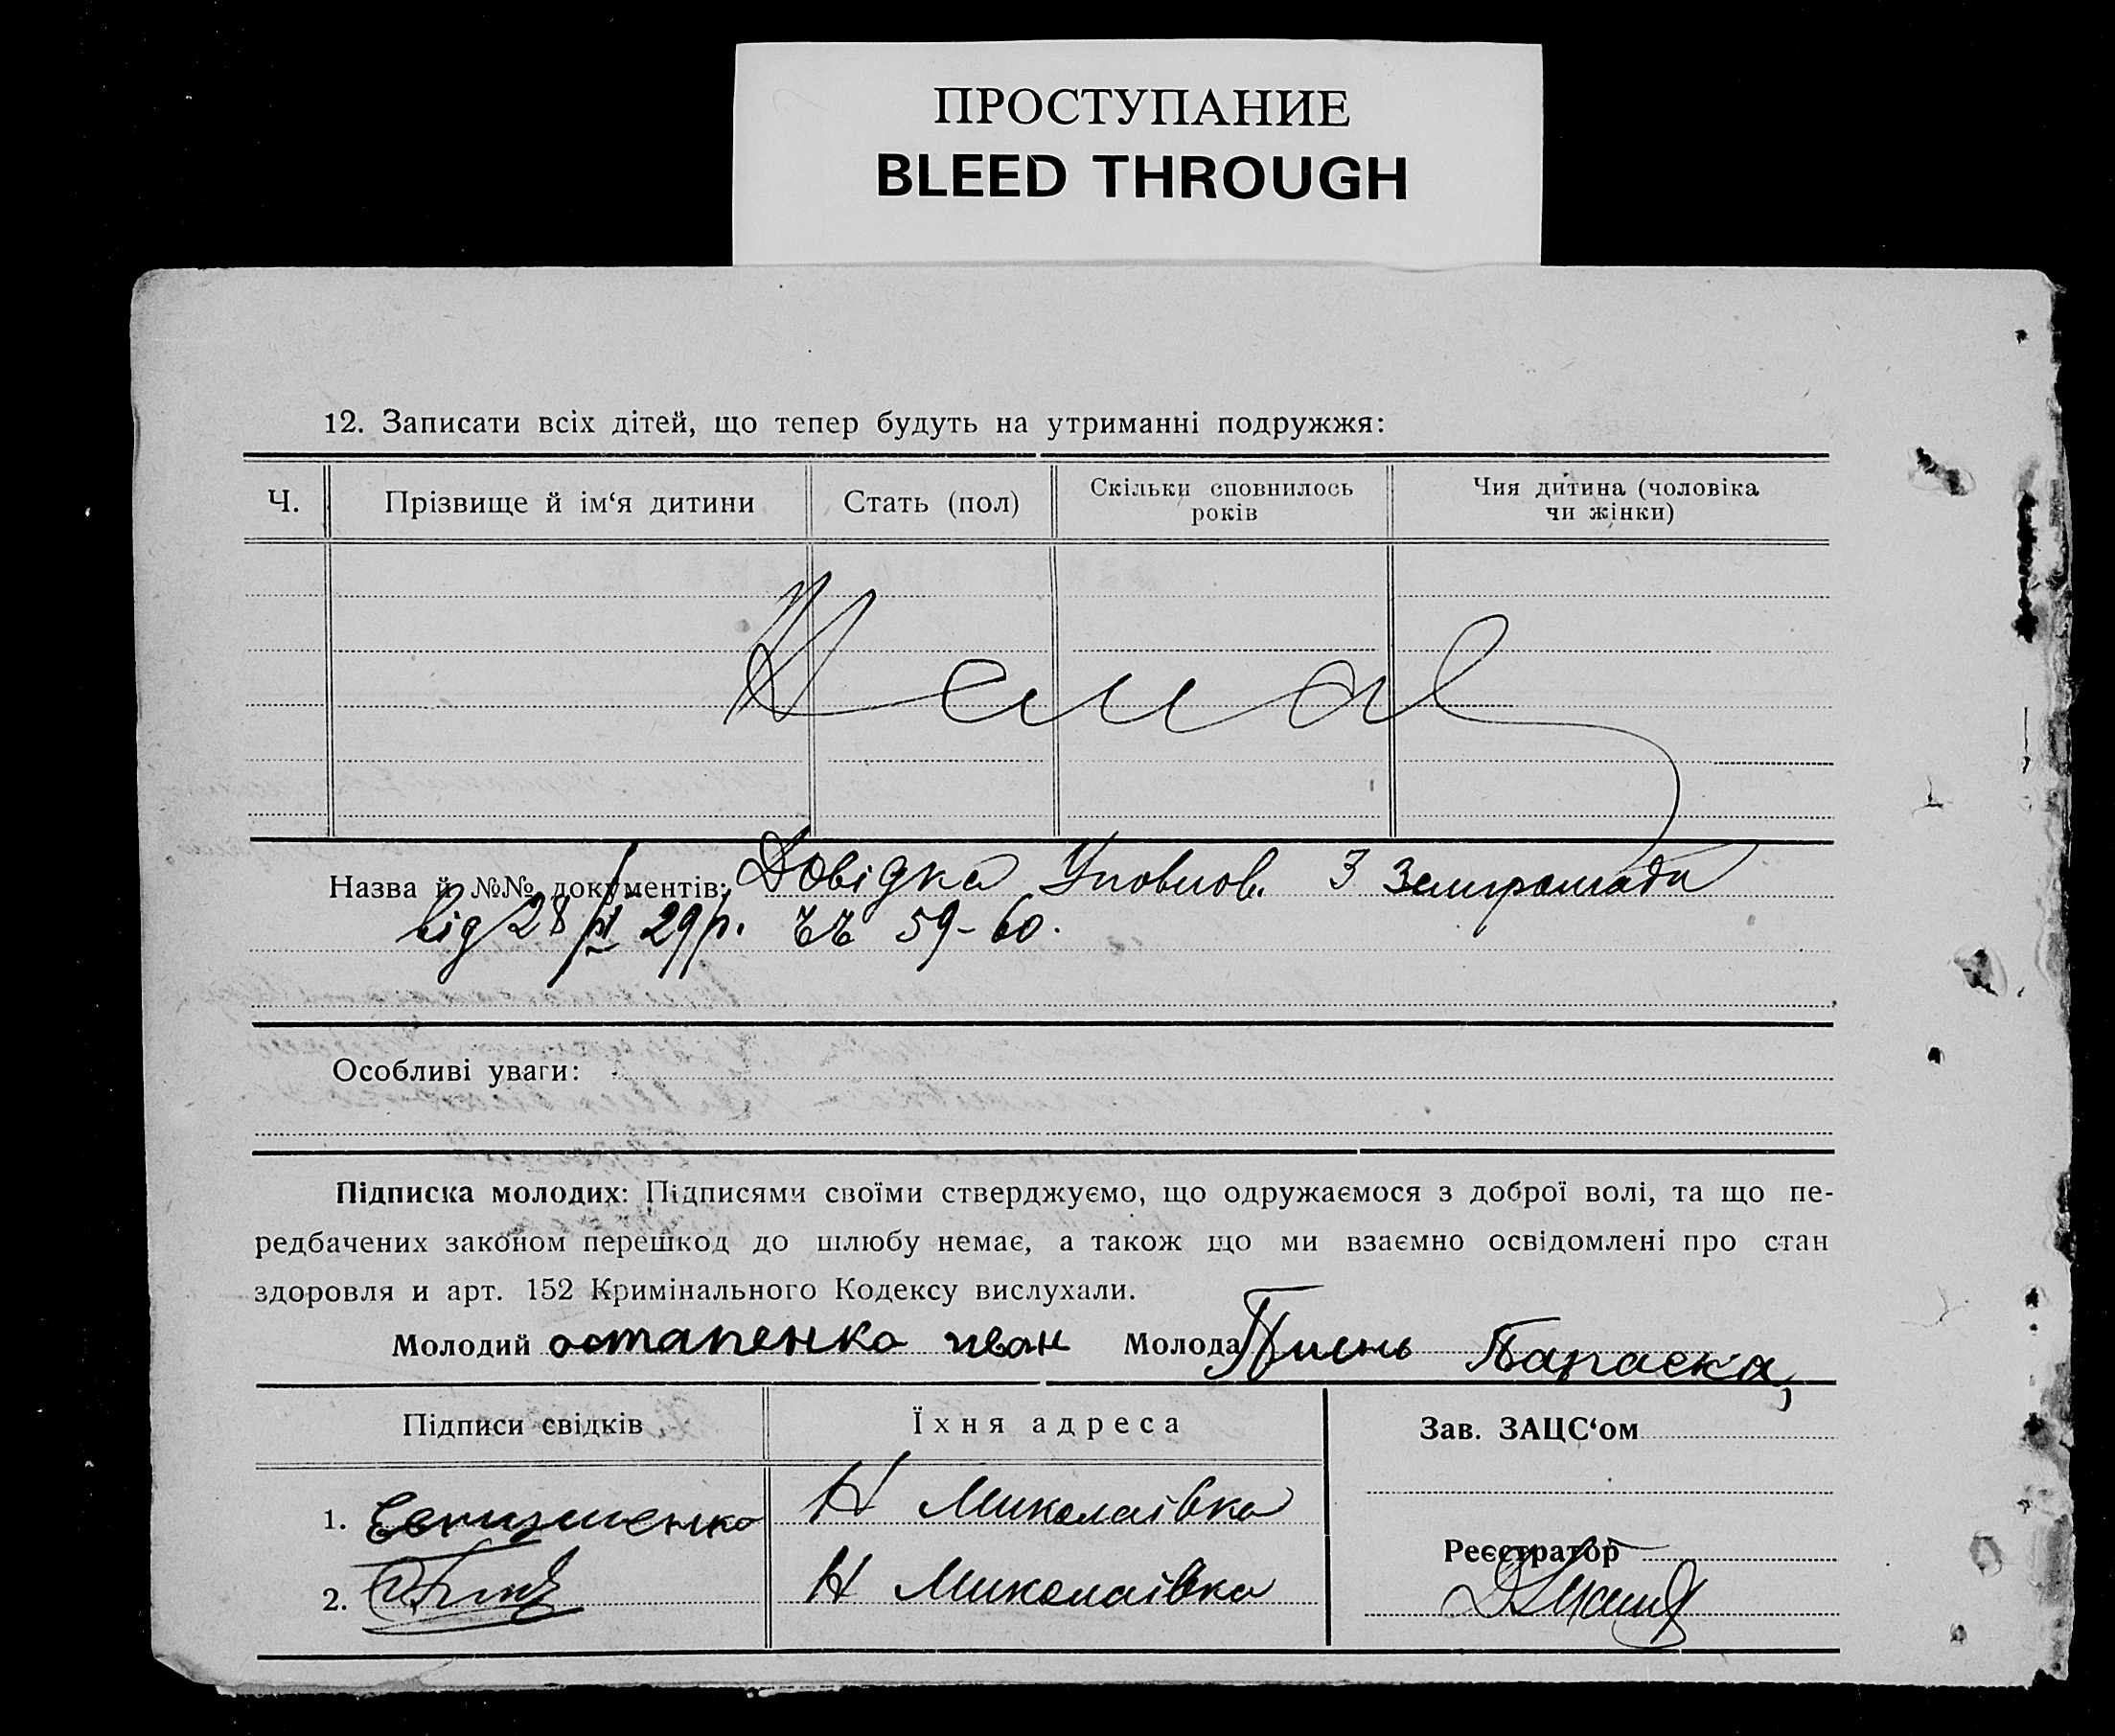 ПРОСТУПАНИЕ
BLEED THROUGH
12. Записати всіх дітей, що тепер будуть на утриманні подружжя:
Ч.
Прізвище й ім‘я дитини
Стать (пол)
Скільки сповнилось
років
Чия дитина (чоловіка
чи жінки)
Немає
Назва й №№ документів: Довідка Уповнов. З Земгромади
від 28/ 29р. 59-60.
Особливі уваги:
Підписка молодих: Підписями своїми стверджуємо, що одружаємося з доброї волі, та що пе-
редбачених законом перешкод до шлюбу немає, а також що ми взаємно освідомлені про стан
здоровля и арт. 152 Кримінального Кодексу вислухали.
Молодий остапенко иван Молода Параска,
Підписи свідків
Їхня адреса
Зав. ЗАЦС‘ом
1.
Н Миколаівка
Реєстратор
2.
Н Миколаівка